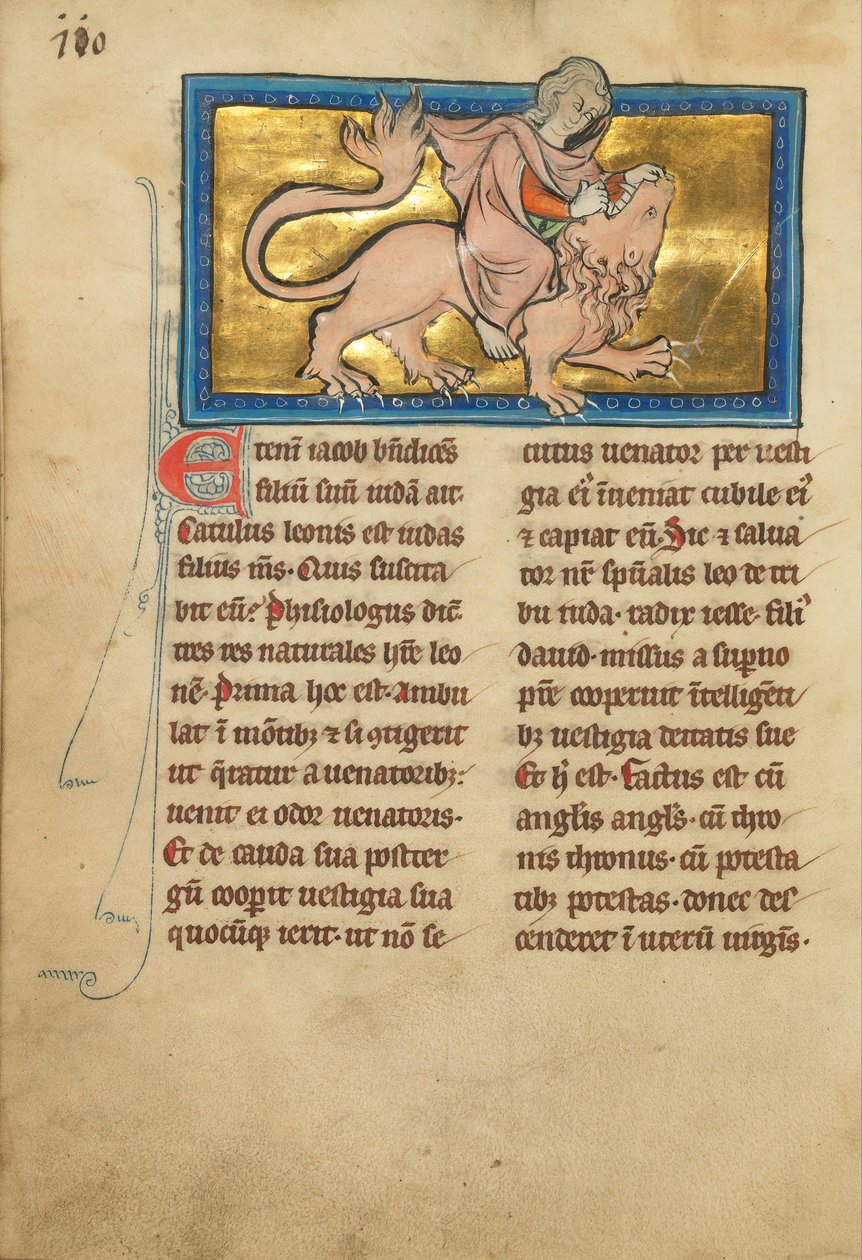 110
Etenī iacob bn̄dicēs
filiū suū iudā ait·
Catulus leonis est iudas
filius m̄s· Quis suscita
bit eū? Phisiologus dic̄
tres res naturales hr̄e leo
nē· Prima hec est· Ambu
lat ī mōtibꝫ ⁊ si ꝯtigerit
ut q̄ratur a uenatoribꝫ:
uenit ei odor uenatoris·
Et de cauda sua postter
gū coop̄it uestigia sua
quocūqꝫ ierit· ut nō se
cutus uenator per uesti
gia eiꝰ īueniat cubile eiꝰ
⁊ capiat eū· Sic ⁊ salua
tor nr̄ sp̄ualis leo de tri
bu iuda· radix iesse· filiꝰ
dauid· missus a sup̄no
pr̄e cooperuit ītelligēti
bꝫ uestigia deitatis sue
Et h̄ est· Factus est cū
anglis angls· cū thro
nis thronus· cū potesta
tibꝫ potestas· donec des
cenderet ī uterū uirgīs·